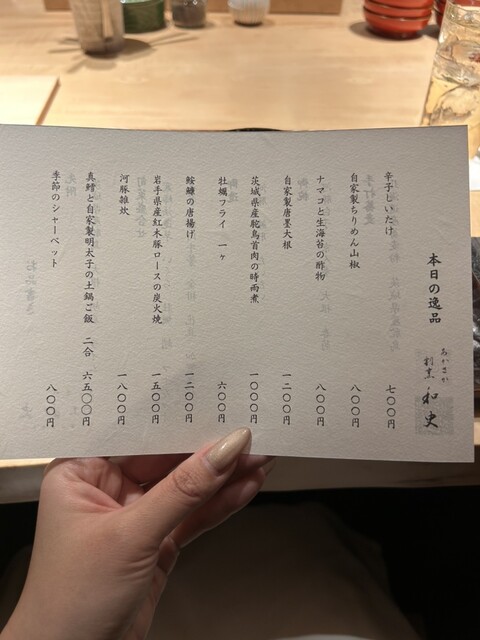 本日の逸品
あかさか
割烹 和史
辛子しいたけ 七〇〇円
自家製ちりめん山椒 八〇〇円
ナマコと生海苔の酢物 八〇〇円
自家製唐墨大根 一二〇〇円
茨城県産駝鳥首肉の時雨煮 一〇〇〇円
牡蠣フライ 一ヶ 六〇〇円
鮟鱇の唐揚げ 一二〇〇円
岩手県産紅木豚ロースの炭火焼 一五〇〇円
河豚雑炊 一八〇〇円
真鱈と自家製明太子の土鍋ご飯 二合 六五〇〇円
季節のシャーベット 八〇〇円